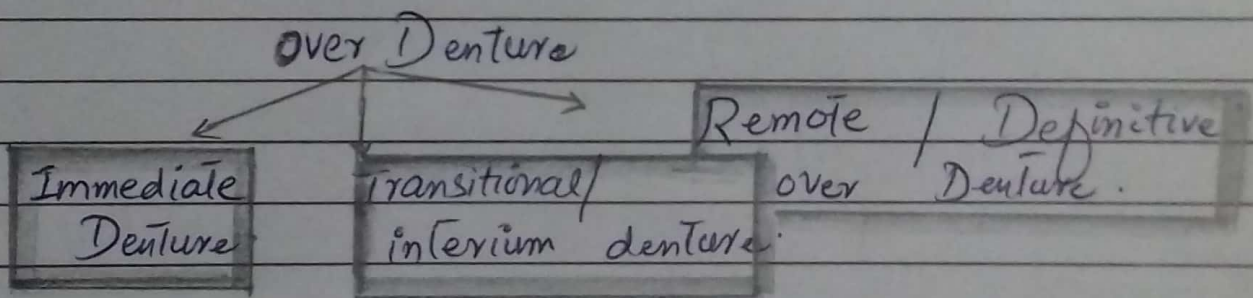 over Denture
Immediate
Denture
Transitional/
interium denture.
Remote / Definitive
over Denture.